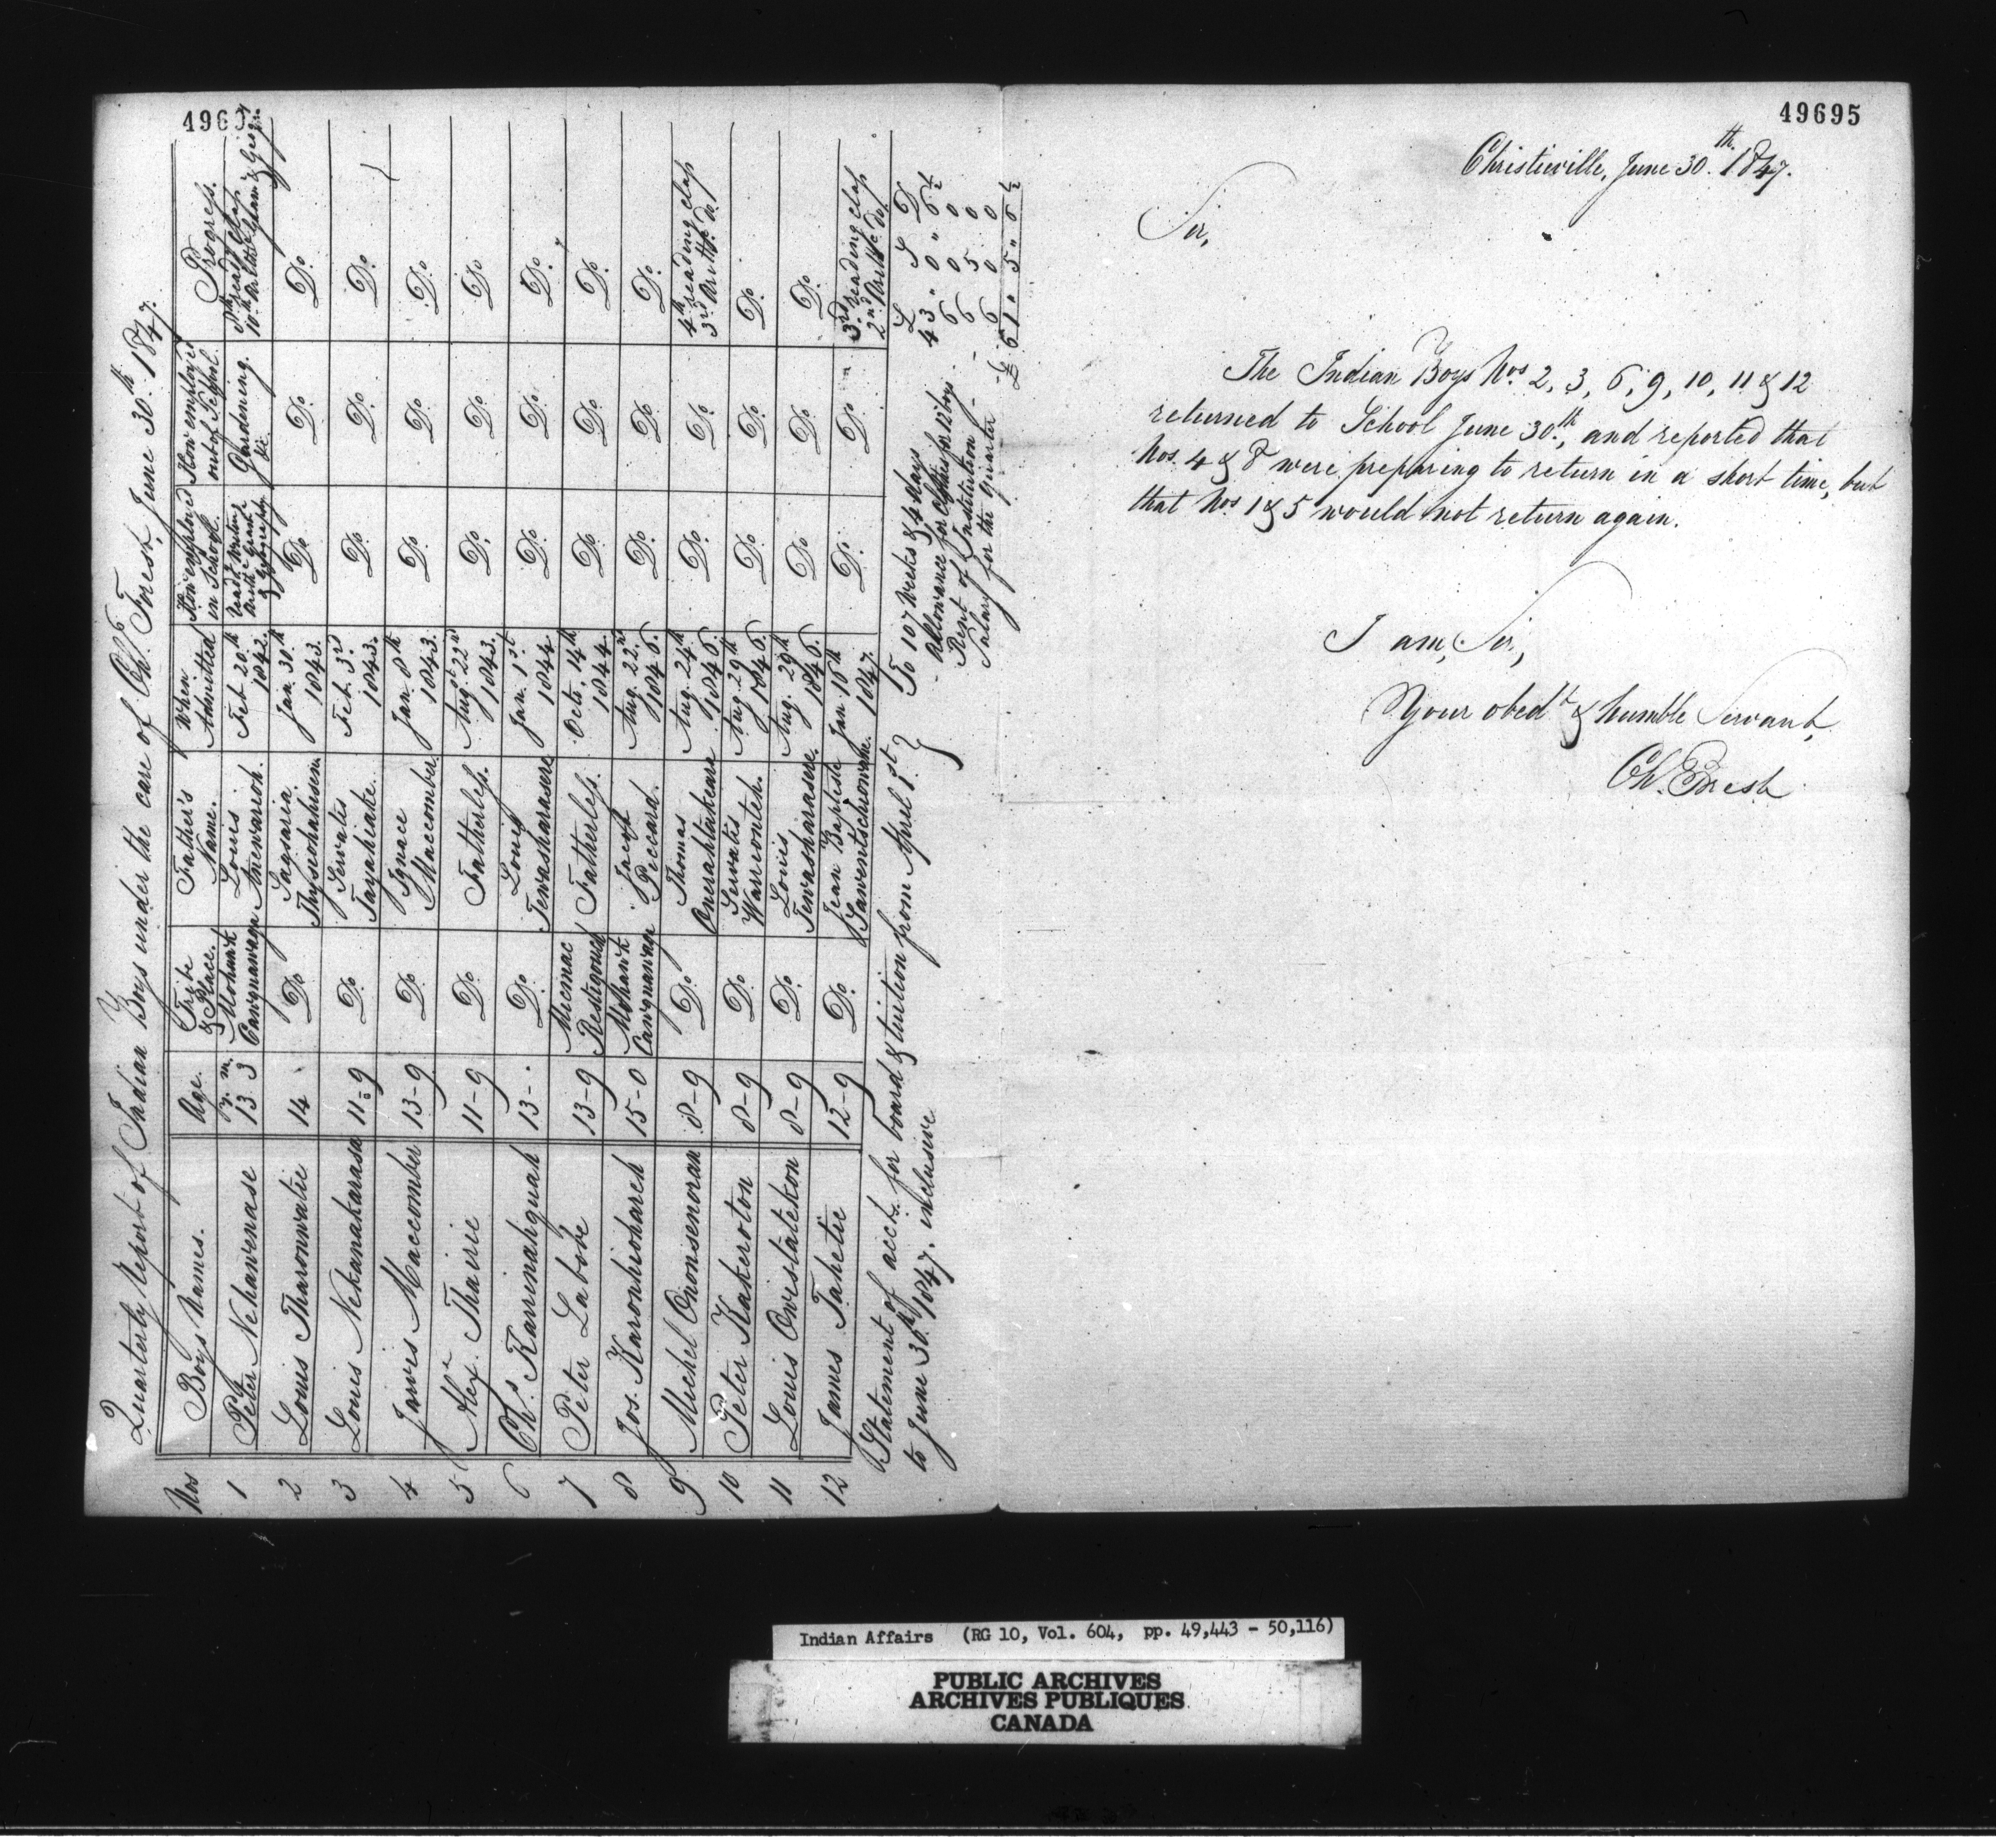 Quarterly Report of Indian Boys under the care of Ch.s Forest, June 30.th 1847.
Nos Boys Names. Age. Tribe & Place. Father's Name. When Admitted How employed in School. How employed out of School. Progress.
y. m.
1 Peter Nehawenase 13 3 Mohawk Cawgnawaga Louis Anenwarioh. Feb. 20.th 1843. Read.g Writing Arith.c Gram.r & Geography Gardening &c. 8th read.g class 10.th Arith.c Gram. & Geogy.
2 Louis Tharonwatie 14 Do Sagsaria Thysrohahisen Jan. 30.th 1843. Do Do. Do.
3 Louis Nekanakarasa 11-9 Do. Servatis Tayahiake. Feb. 3.rd 1843. Do. Do. Do.
4 Jarvis Maccomber 13-9 Do. Ignace Maccomber Jan. 8th 1843. Do. Do. Do.
5 Alex.r Thairie 11-9 Do. Fatherless. Aug.st 22nd 1843. Do. Do. Do
6 Ch.s Karrinahguah 13-. Do. Louis Tewasharasere Jan. 1st 1844 Do. Do. Do.
7 Peter Labobe 13-9 Micmac Restigouch Fatherless. Octo. 14th 1844. Do. Do. Do.
8 Jos. Karonhiohareh 15-0 Mohawk Cawgnawaga Peccard. Aug. 22.nd 1846. Do. Do. Do.
9 Michel Ononsenoran 8-9 Do. Thomas Onerahtakeara Aug. 24th 1846. Do. Do. 4th reading class 3rd Arith.c do.
10 Peter Kakeroton 8-9 Do. Servatis Warrionteh. Aug. 29th 1846. Do. Do. Do.
11 Louis Owistatekon 8-9 Do. Louis Tewasharasere. Aug. 29th 1846. Do. Do. Do.
12 James Tahetie 12-9 Do. Jean Baptiste Jan. 16th 1847. Do. Do 3rd reading class 2nd Arith.c do.
Statement of acct. for board & tuition from April 1st
to June 30.th 1847. inclusive
L S D
To 107 Weeks & 4 days 43 " 0 " 6½
Allowance for Clothes for 12 boys 6 0 0
Rent of Institution 6 5 0
Salary for the Quarter 6 0 0
£ 61 " 5 " 6½
49695
Christieville, June 30.th 1847.
Sir,
The Indian Boys Nos. 2, 3, 6, 9, 10, 11 & 12
returned to School June 30.th, and reported that
Nos. 4 & 8 were preparing to return in a short time, but
that Nos 1 & 5 would not return again.
I am, Sir,
Your obed.t & humble Servant,
Ch. Forest
Indian Affairs (RG 10, Vol. 604, pp. 49,443 - 50,116)
PUBLIC ARCHIVES
ARCHIVES PUBLIQUES
CANADA